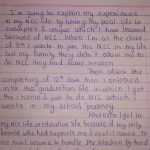 I'm going to explain my experiences
in my NCC life by taking my real life in
examples & unique which I have learned
because of NCC. When I'm at the class
of 8th I wants to join this NCC in my life
but my family they didn't allow me to
do NCC they had some reason
Then after the
completing of 12th class then I entered
into the graduation life in which I got
the chance I join to do NCC which I
wants in my school journey
whenever I get in
my NCC life graduation life
parents who had supports me
the real source to handle the situation by hard